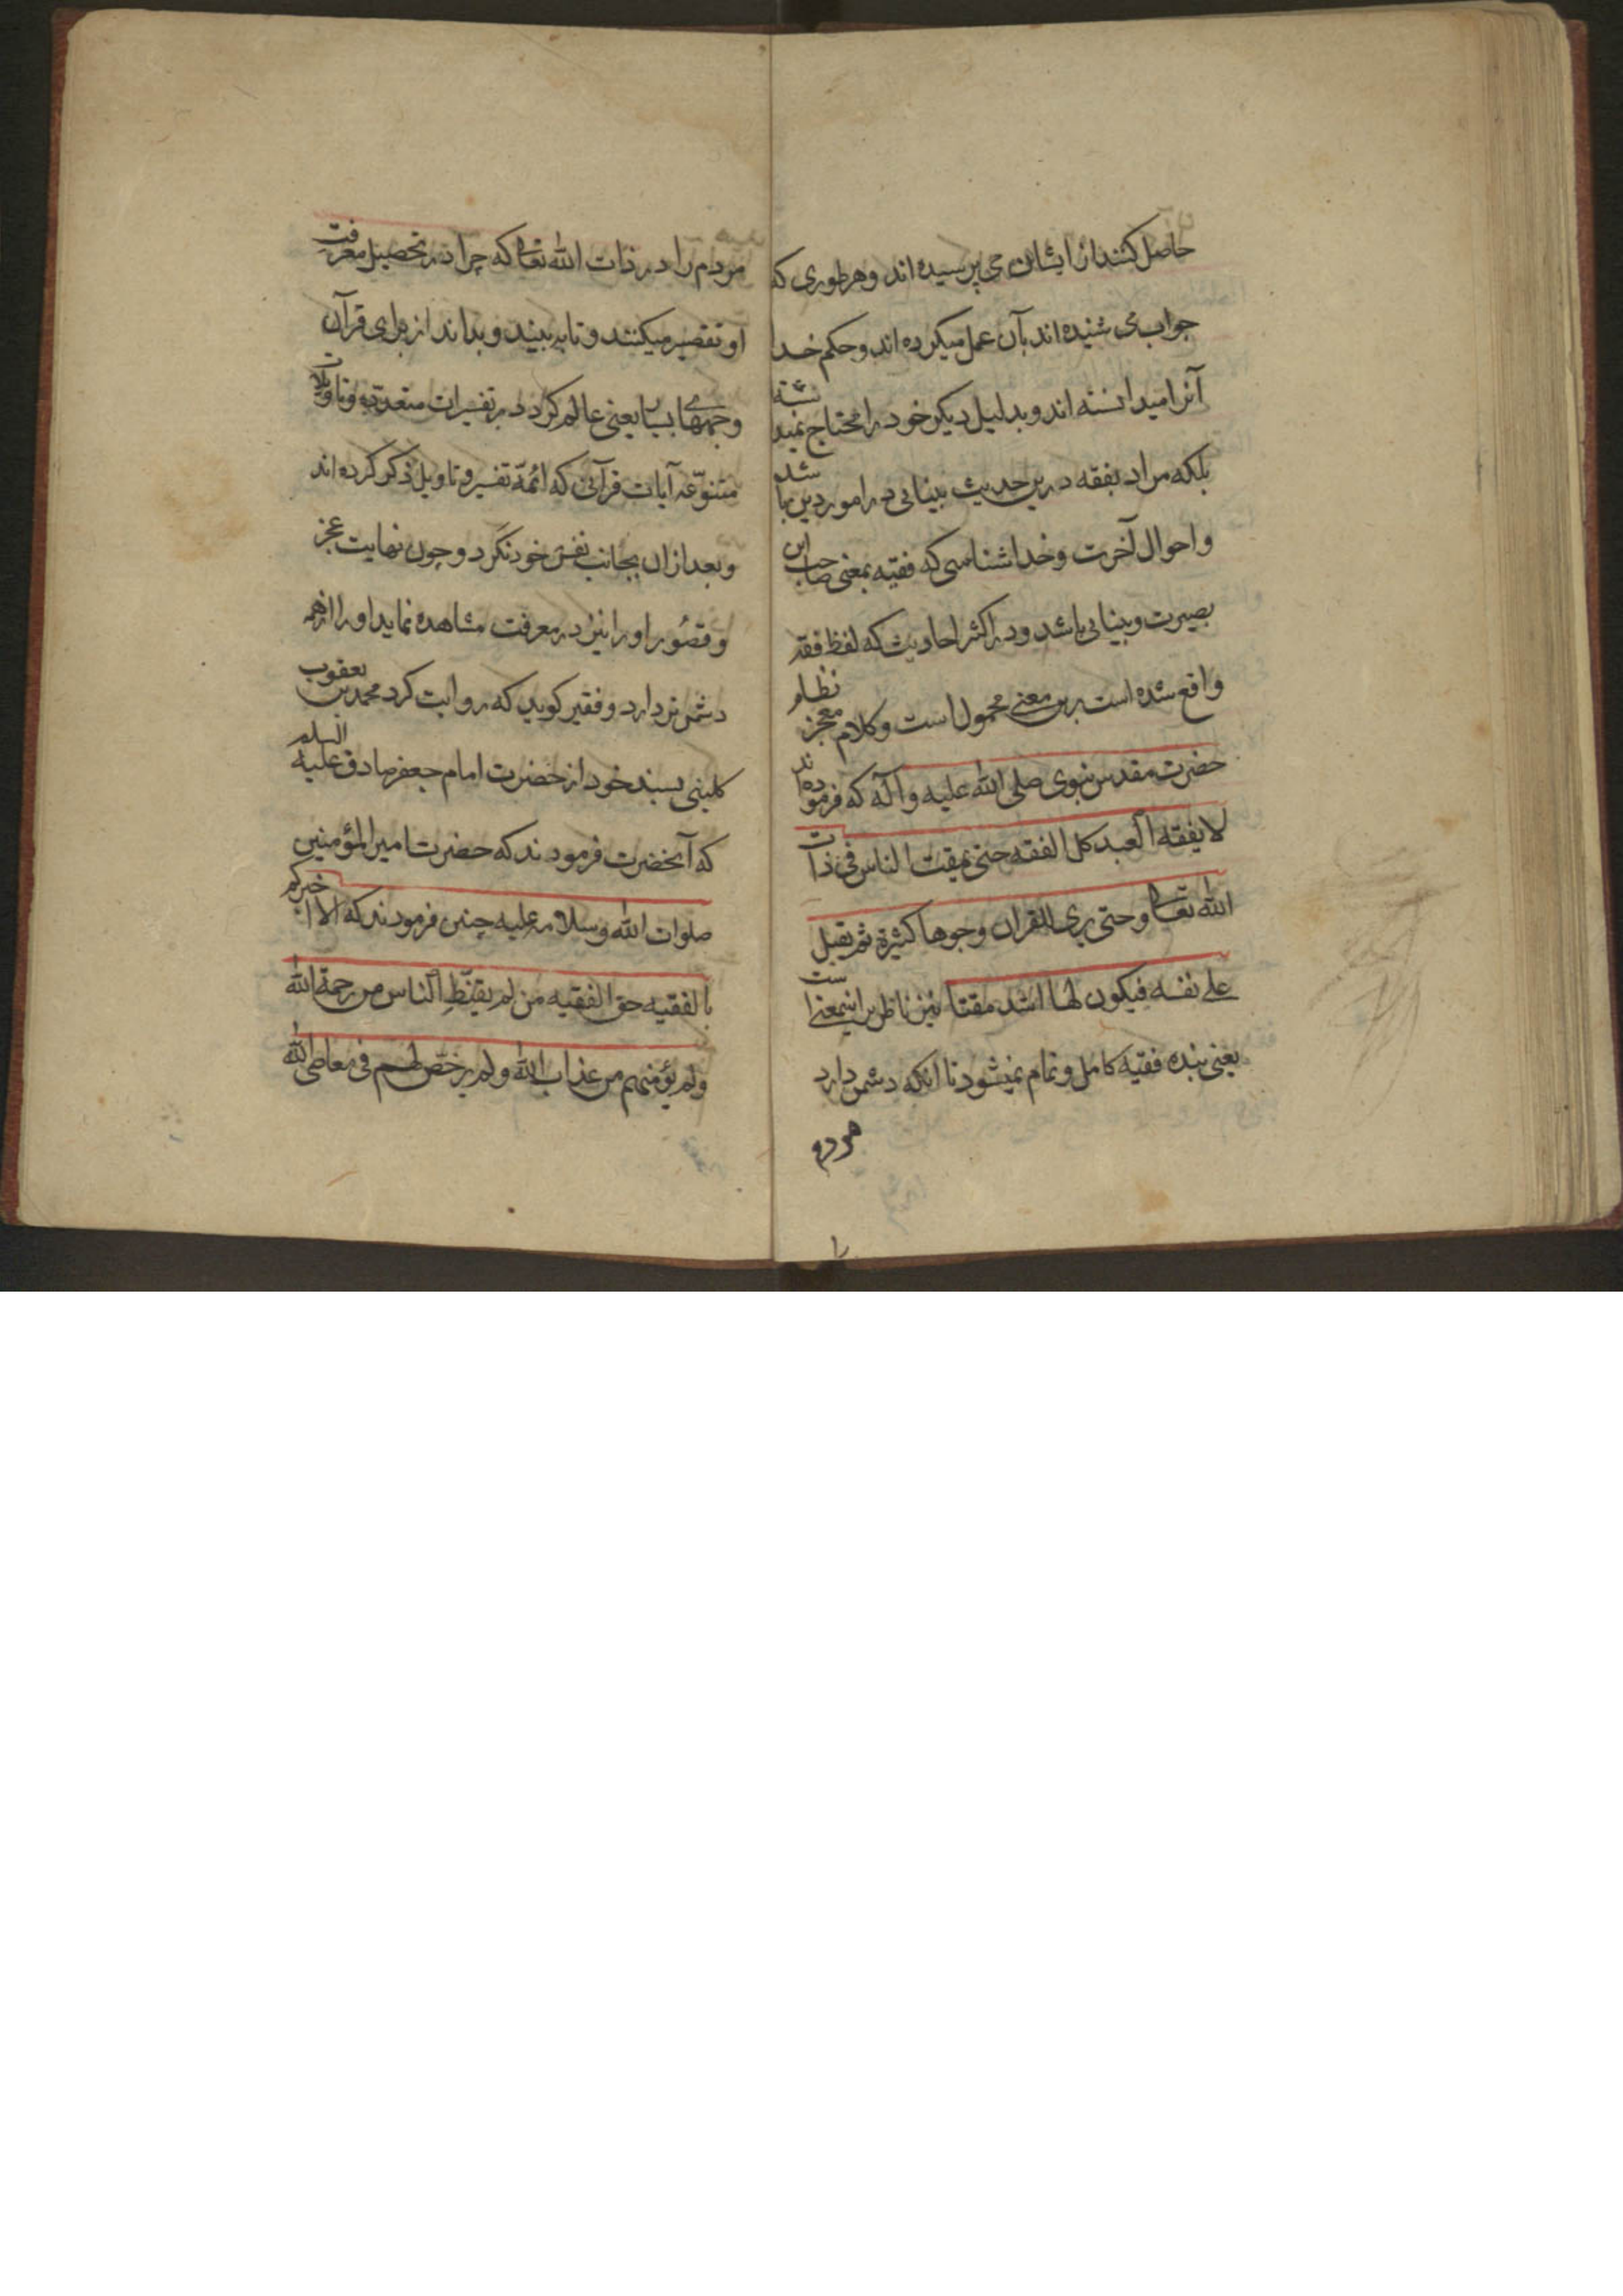 حاصل کنند از ایشان می پرسیده اند و هر طوری که
جواب می شنیده اند بآن عمل میکرده اند و حکم خدا
آنرا میدانسته اند و بدلیل دیکر خود را محتاج نمیدانسته
بلکه مراد بفقه درین حدیث بینایی در امور دین باشد
و احوال آخرت و خداشناسی که فقیه بمعنی صاحب این
بصیرت و بینایی باشد و در اکثر احادیث که لفظ فقه
واقع شده است برین معنے محمول است و کلام معجز نظام
حضرت مقدس نبوی صلی الله علیه و آله که فرموده‌اند
لا یفقه العبد کل الفقه حتی یمقت الناس فی ذات
الله تعالی و حتی یری للقران وجوها کثیرة ثم یقبل
علے نفسه فیکون لها اشد مقتا نیز ناظر براینمعنی است
یعنی بنده فقیه کامل و تمام نمیشود تا انکه دشمن دارد
مردم
مردم را در ذات الله تعالی که چرا در تحصیل معرفت
او تقصیر میکنند و تا به بیند و بداند از برای قرآن
وجههای بسیار یعنی عالم کردد در تفسیرات متعدده و تاویلات
متنوّعه آیات قرآنی که ائمّهٔ تفسیر و تاویل ذکر کرده اند
و بعد ازان بجانب نفس خود نکرد و چون نهایت عجز
و قصور او را نیز در معرفت مشاهده نماید او را از همه
دشمن تر دارد و فقیر کوید که روایت کرد محمد بن یعقوب
کلینی بسند خود از حضرت امام جعفر صادق علیه السلم
که آنحضرت فرمودند که حضرت امیر المؤمنین
صلوات الله و سلامه علیه چنین فرمودند که الا اخبرکم
بالفقیه حق الفقیه من لم یقنّطِ الناس من رحمة الله
ولم یؤمنهم من عذاب الله ولم یرخّص لهم فی معاصی الله